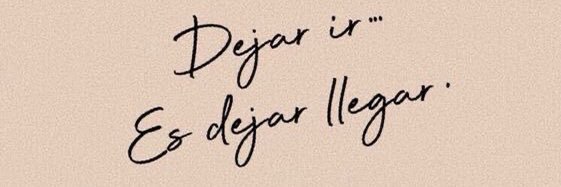 Dejar ir...
Es dejar llegar.